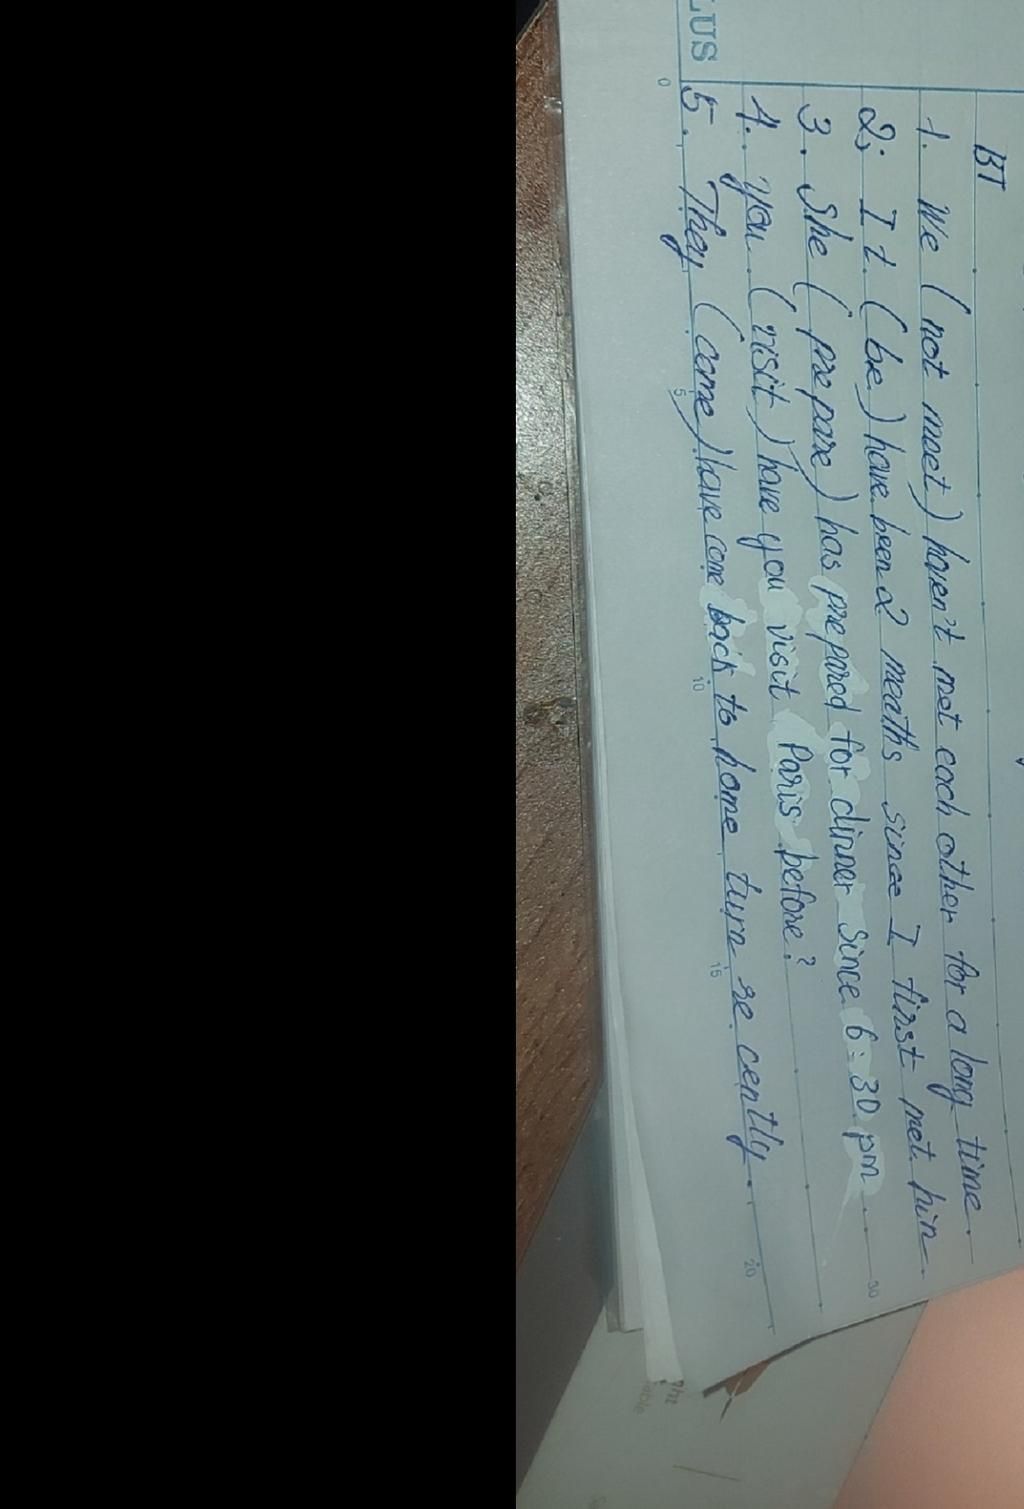 BT
1. We (not meet) haven't met each other for a long time.
2; It (be) have been 2 meaths since I first met him.
3. She (prepare) has prepared for dinner since 6:30 pm.
4. you (visit) have you visit Paris before?
5. They (come) have come back to home turn re cently.
LUS
0
5
10
15
20
30